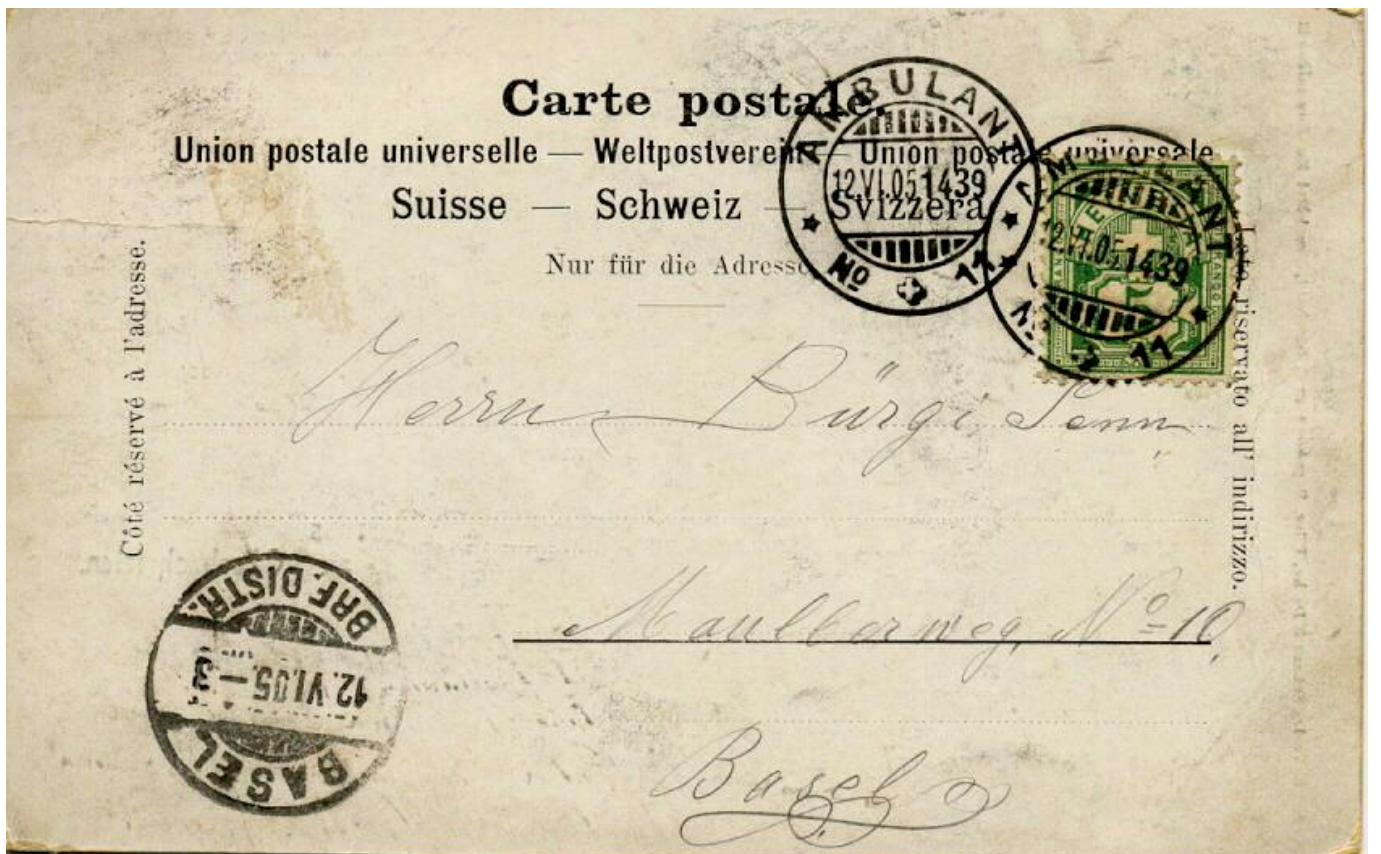 Carte postale.
Union postale universelle — Weltpostverein — Union postale universale
Suisse — Schweiz — Svizzera
Nur für die Adresse
Côté réservé à l'adresse.
Lato riservato all' indirizzo.
AMBULANT
12.VI.05 1439
No 11
AMBULANT
12.VI.05 1439
No 11
5
Herrn Bürgi Senn
Maulberweg, No 10
Basel
BRF. DISTR.
12. VI.05.–3
BASEL